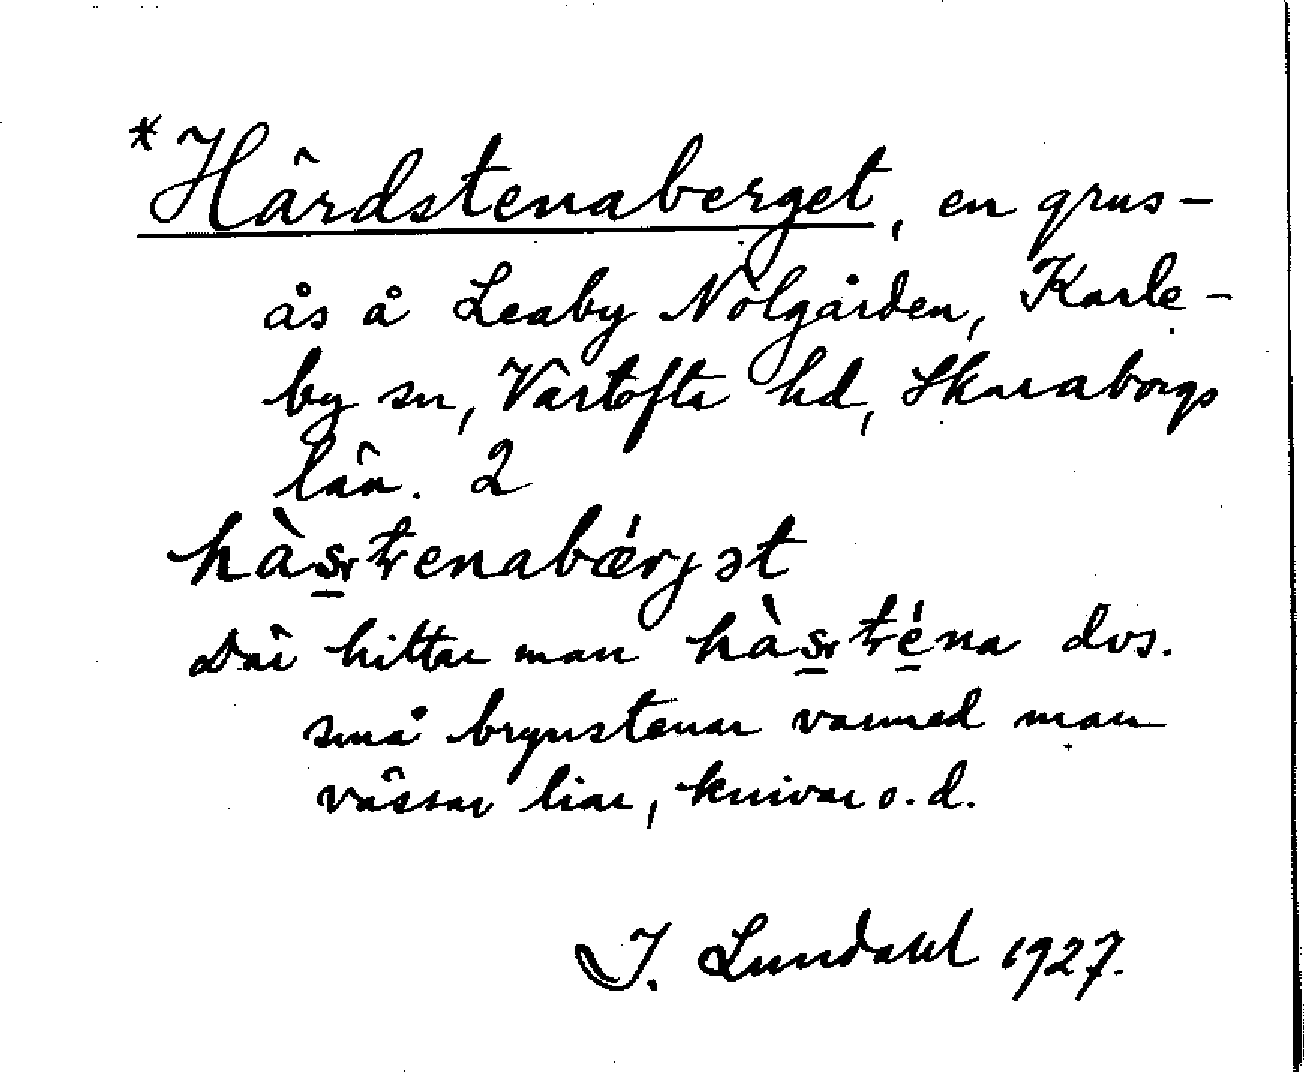 *Härdstenaberget, en grus-
ås å Leaby Nolgården, Karle-
by sn, Vartofta hd, Skaraborgs
län. 2
hàs̱tenabǽrjət
Där hittar man hàs̱téna dvs.
små brynstenar varmed man
vässar liar, knivar o.d.
I. Lundahl 1927.